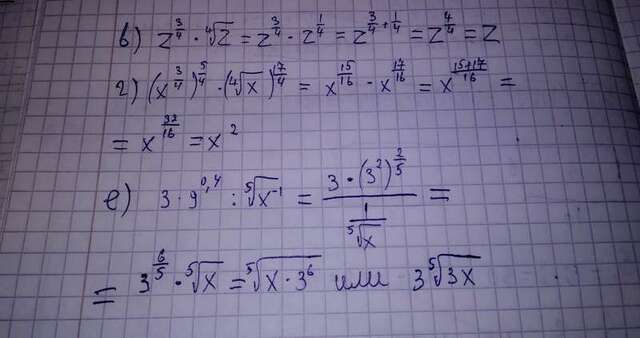 в) z^{3/4} · ⁴√z = z^{3/4} · z^{1/4} = z^{3/4 + 1/4} = z^{4/4} = z
г) (x^{3/4})^{5/4} · (⁴√x)^{17/4} = x^{15/16} · x^{17/16} = x^{(15+17)/16} =
= x^{32/16} = x²
е) 3 · 9^{0,4} : ⁵√x⁻¹ = (3 · (3²)^{2/5}) / (1/⁵√x) =
= 3^{6/5} · ⁵√x = ⁵√(x · 3⁶) или 3⁵√(3x)